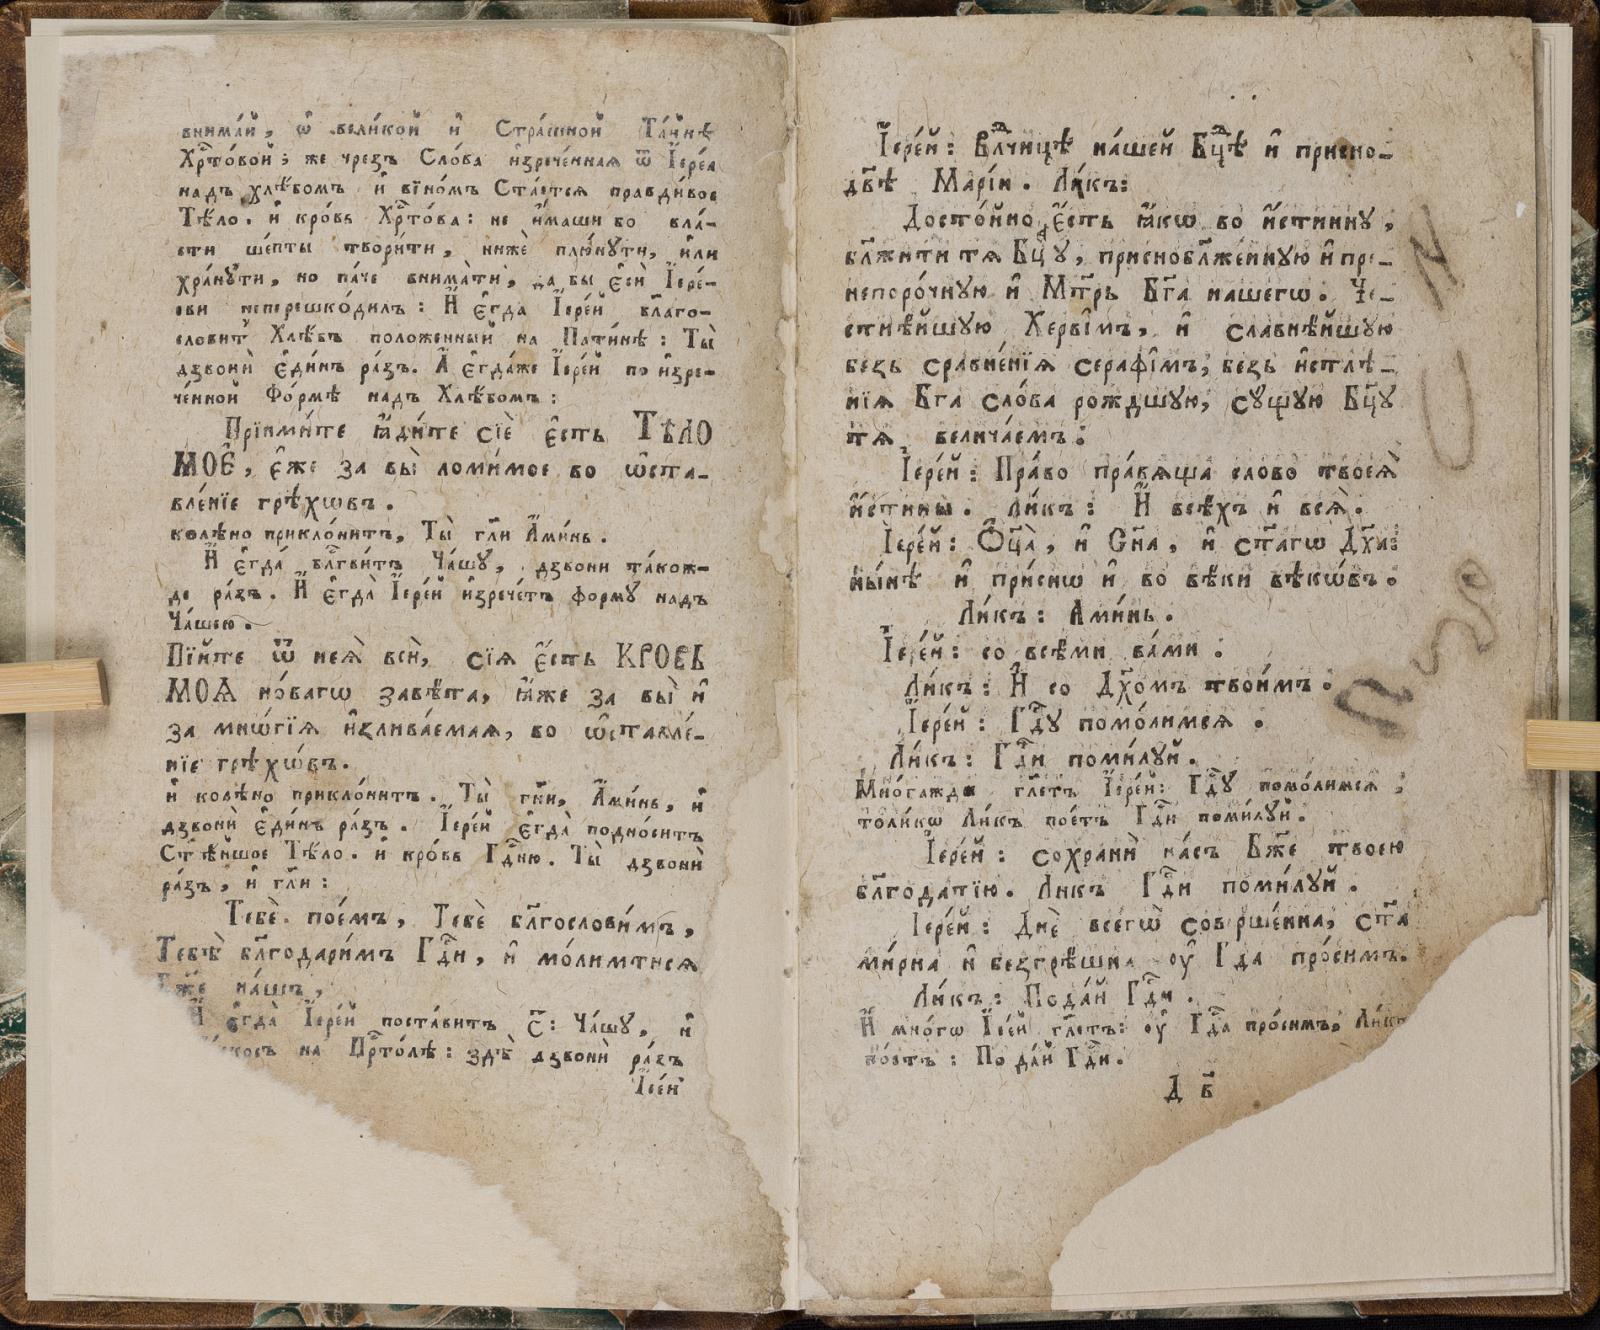 внима́й, ѡ҆ вели́кой и҆ Стра́шной Та́йнѣ
Хрⷭ҇то́вой; же чрезъ Сло́ва и҆зрече́нная ѿ І҆ере́а
надъ хлѣ́бомъ и҆ віно́мъ Ста́етсѧ правди́вое
Тѣ́ло. и҆ кро́вь Хрⷭ҇то́ва: не и҆́маши во вла́-
сти ше́пты твори́ти, нижѐ плю́нути, и҆лѝ
хра́нꙋти, но па́че внима́ти, да бы є҆сѝ І҆ере́-
ови неперешко́дилъ: И҆ є҆гда І҆ере́й благо-
слови́т Хлѣ́бъ положенный на Пати́нѣ: Ты̀
дзвонѝ є҆ди́нъ ра́зъ. А҆ є҆гда́же І҆ере́й по и҆зре-
че́нной Фо́рмѣ надъ Хлѣ́бомъ:
Прїими́те ꙗ҆ди́те сїѐ є҆́сть ТѢЛО
МОЀ, є҆́же за вы̀ ломи́мое во ѡ҆ста-
вле́нїе грѣхѡвъ.
колѣно приклони́тъ, Ты̀ гл҃и А҆ми́нь.
И҆ є҆гда̀ бл҃гви́тъ Ча́шꙋ, дзвони та́кож-
де ра́зъ. И҆ є҆гда̀ І҆ере́й и҆зрече́тъ формꙋ надъ
Ча́шею.
Пі́йте ѿ неѧ̀ всѝ, сїѧ є҆́сть КРОВЬ
МОѦ но́вагѡ завѣ́та, ꙗ҆́же за вы̀ и҆
за мнѡ́гїѧ и҆злива́емая, во ѡ҆ставле́-
нїе грѣхѡ́въ.
и҆ колѣ́но приклони́тъ. Ты̀ гл҃и, А҆ми́нь, и҆
дзвонѝ є҆ди́нъ ра́зъ. І҆ере́й є҆гда̀ подно́ситъ
Ст҃ѣ́йшое Тѣ́ло. и҆ кро́вь Гдⷭ҇ню. Ты̀ дзвонѝ
ра́зъ, и҆ гл҃и:
Тебѐ пое́мъ, Тебѐ бл҃гослови́мъ,
Тебѣ̀ бл҃годари́мъ Гдⷭ҇и, и҆ мо́лимтисѧ
Бж҃е на́шъ,
И҆ є҆гда̀ І҆ере́й поста́витъ С҃: Ча́шꙋ, и҆
на Прⷭ҇то́лѣ: здѣ̀ дзвонѝ ра́зъ
І҆ере́й
І҆ере́й: Влⷣчицѣ на́шей Бцⷣѣ и҆ присно-
дв҃ѣ Марі́и. Ли́къ:
Досто́йно є҆́сть ꙗ҆кѡ во и҆́стиннꙋ,
бл҃жити тѧ Бцⷣꙋ, присноблⷤе́ннꙋю и҆ пре-
непоро́чнꙋю и҆ Мт҃рь Бг҃а нашегѡ. Че-
стнѣ́йшꙋю Херꙋві̂мъ, и҆ славнѣ́йшꙋю
безъ сравне́нїя серафі̂мъ, безъ и҆стлѣ-
нїя Бг҃а сло́ва рождшꙋю, сꙋ́щꙋю Бцⷣꙋ
тѧ велича́емъ:
І҆ере́й: Пра́во пра́вяща слово твоеѧ̀
и҆́стины. Ли́къ: И҆ всѣ́хъ и҆ всѧ̀.
І҆ере́й: Ѻ҆ц҃а̀, и҆ Сн҃а, и҆ ст҃агѡ Дх҃а:
ны́нѣ и҆ при́снѡ и҆ во вѣки вѣкѡ́въ.
Ли́къ: Ами́нь.
І҆ере́й: со всѣ́ми ва́ми:
Ли́къ: И҆ со Дх҃омъ твои́мъ:
І҆ере́й: Гдⷭ҇ꙋ помо́лимсѧ.
Ли́къ: Гдⷭ҇и поми́лꙋй.
Мно́гажды гл҃етъ І҆ере́й: Гдⷭ҇ꙋ помо́лимсѧ;
толи́кѡ Ли́къ пое́тъ Гдⷭ҇и поми́лꙋй.
І҆ере́й: сохранѝ на́съ Бж҃е твоею
бл҃года́тїю. Ликъ Гдⷭ҇и поми́лꙋй.
І҆ере́й: Днѐ всегѡ̀ соврше́нна, ст҃а
ми́рна и҆ безгрѣ́шна оу҆ Гда про́симъ.
Ли́къ: Пода́й Гдⷭ҇и.
И҆ мно́гѡ І҆ере́й гл҃етъ: оу҆ Гдⷭ҇а про́симъ, Ли́къ
по́етъ: Пода́й Гдⷭ҇и.
Д в҃